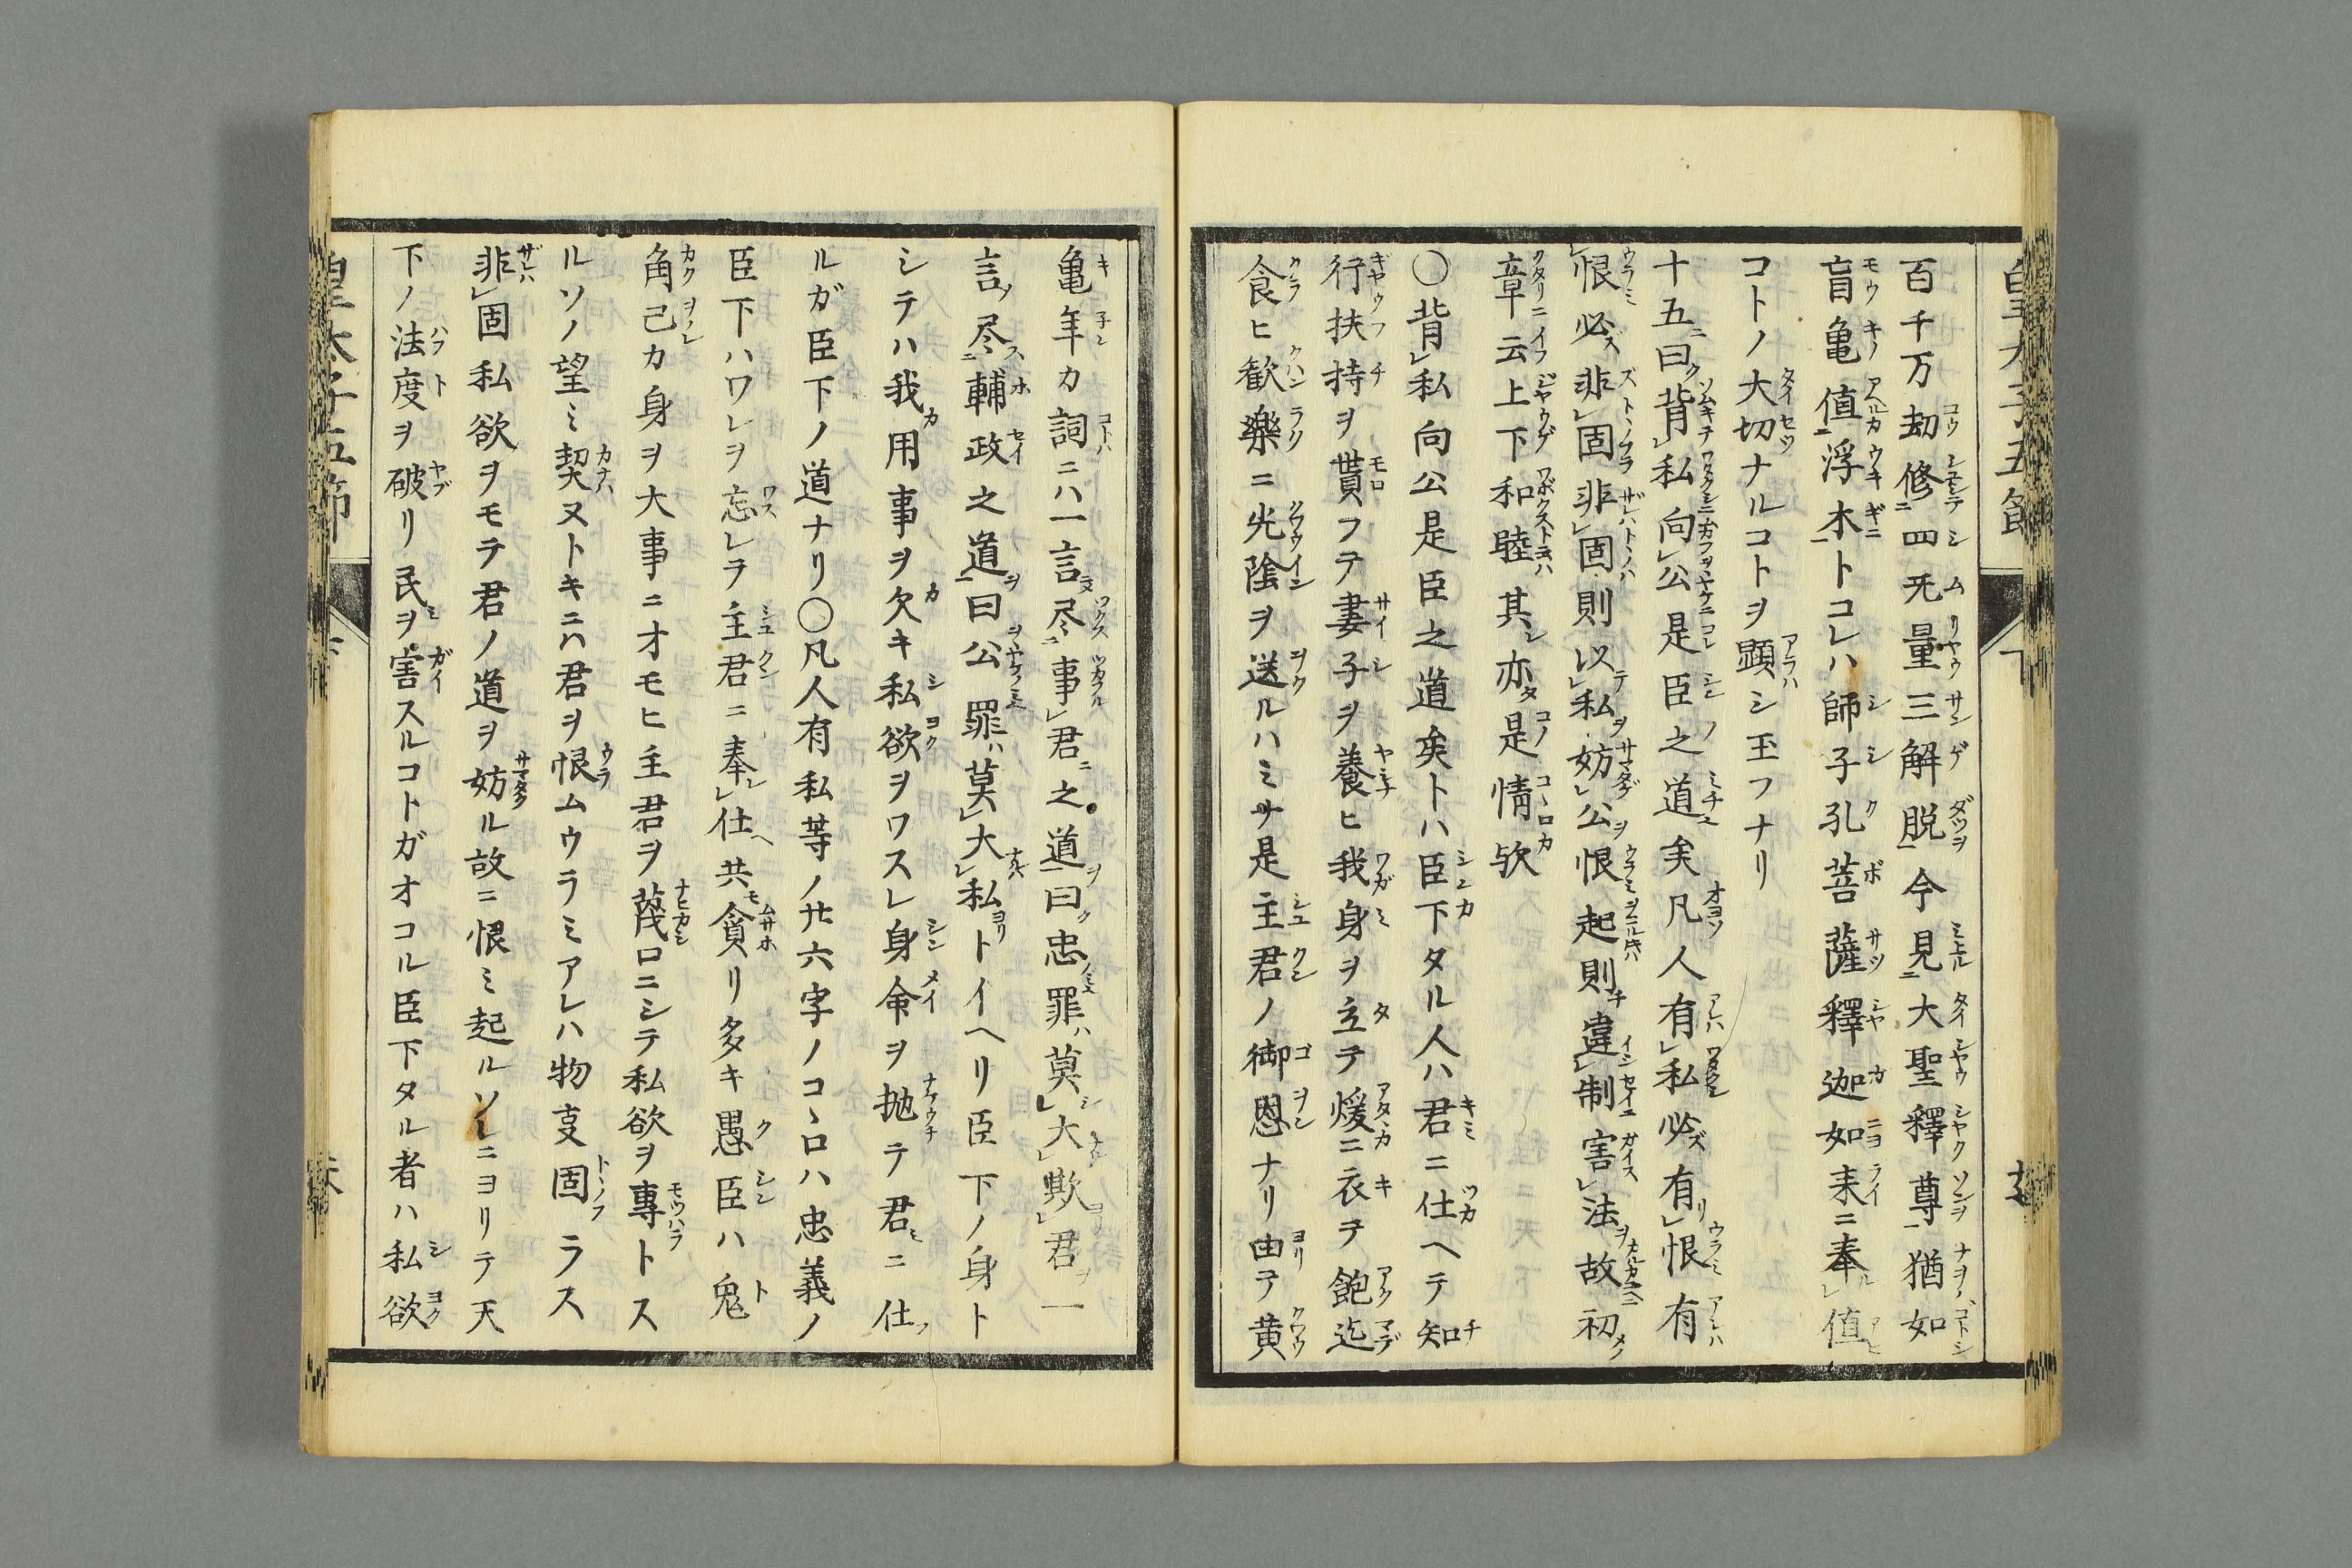 百千万劫修二四无量三解脱一今見二大聖釋尊一猶如
盲亀値二浮木一トコレハ師子孔菩薩釋迦如来ニ奉レ値
コトノ大切ナルコトヲ顕シ玉フナリ
十五ニ曰ク背レ私向レ公是臣之道矣凡人有レ私必ズ有レ恨有
レ恨必ズ非レ固非レ固則以レ私妨レ公恨起則チ違レ制害レ法故初
章云上下和睦其レ亦タ是情欤
〇背レ私向公是臣之道矣トハ臣下タル人ハ君ニ仕ヘテ知
行扶持ヲ貰フテ妻子ヲ養ヒ我身ヲ立テ煖ニ衣テ飽迄
食ヒ歓樂ニ光陰ヲ送ルハミサ是主君ノ御恩ナリ由テ黄
亀年カ詞ニハ一言尽二事レ君之道一曰ク忠罪ハ莫レ大レ欺レ君ヲ一
言ノ尽二輔政之道一曰公罪ハ莫レ大レ私トイヘリ臣下ノ身ト
シテハ我用事ヲ欠キ私欲ヲワスレ身命ヲ抛テ君ニ仕フ
ルガ臣下ノ道ナリ〇凡人有私等ノ廿六字ノコヽロハ忠義ノ
臣下ハワレヲ忘レテ主君ニ奉レ仕ヘ共貪リ多キ愚臣ハ兎
角己カ身ヲ大事ニオモヒ主君ヲ蔑ロニシテ私欲ヲ專トス
ルソノ望ミ契ヌトキニハ君ヲ恨ムウラミアレハ物叓固ラス
非レ固私欲ヲモテ君ノ道ヲ妨ル故ニ恨ミ起ルソレニヨリテ天
下ノ法度ヲ破リ民ヲ害スルコトガオコル臣下タル者ハ私欲
皇太子五節